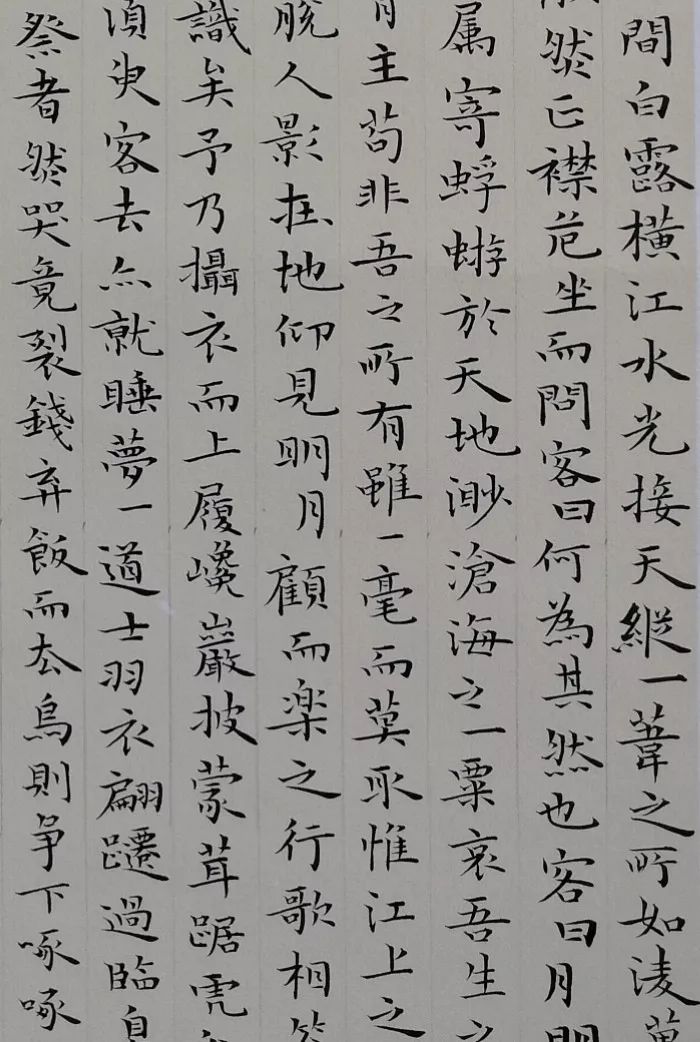 間白露橫江水光接天縱一葦之所如凌萬
然正襟危坐而問客曰何為其然也客曰月明
属寄蜉蝣於天地渺滄海之一粟哀吾生之
主苟非吾之所有雖一毫而莫取惟江上之
脫人影在地仰見明月顧而楽之行歌相答
識矣予乃攝衣而上履巉巖披蒙茸踞虎
須臾客去亦就睡夢一道士羽衣翩躚過臨皋
祭者然哭竟裂錢弃飯而去烏則争下啄啄